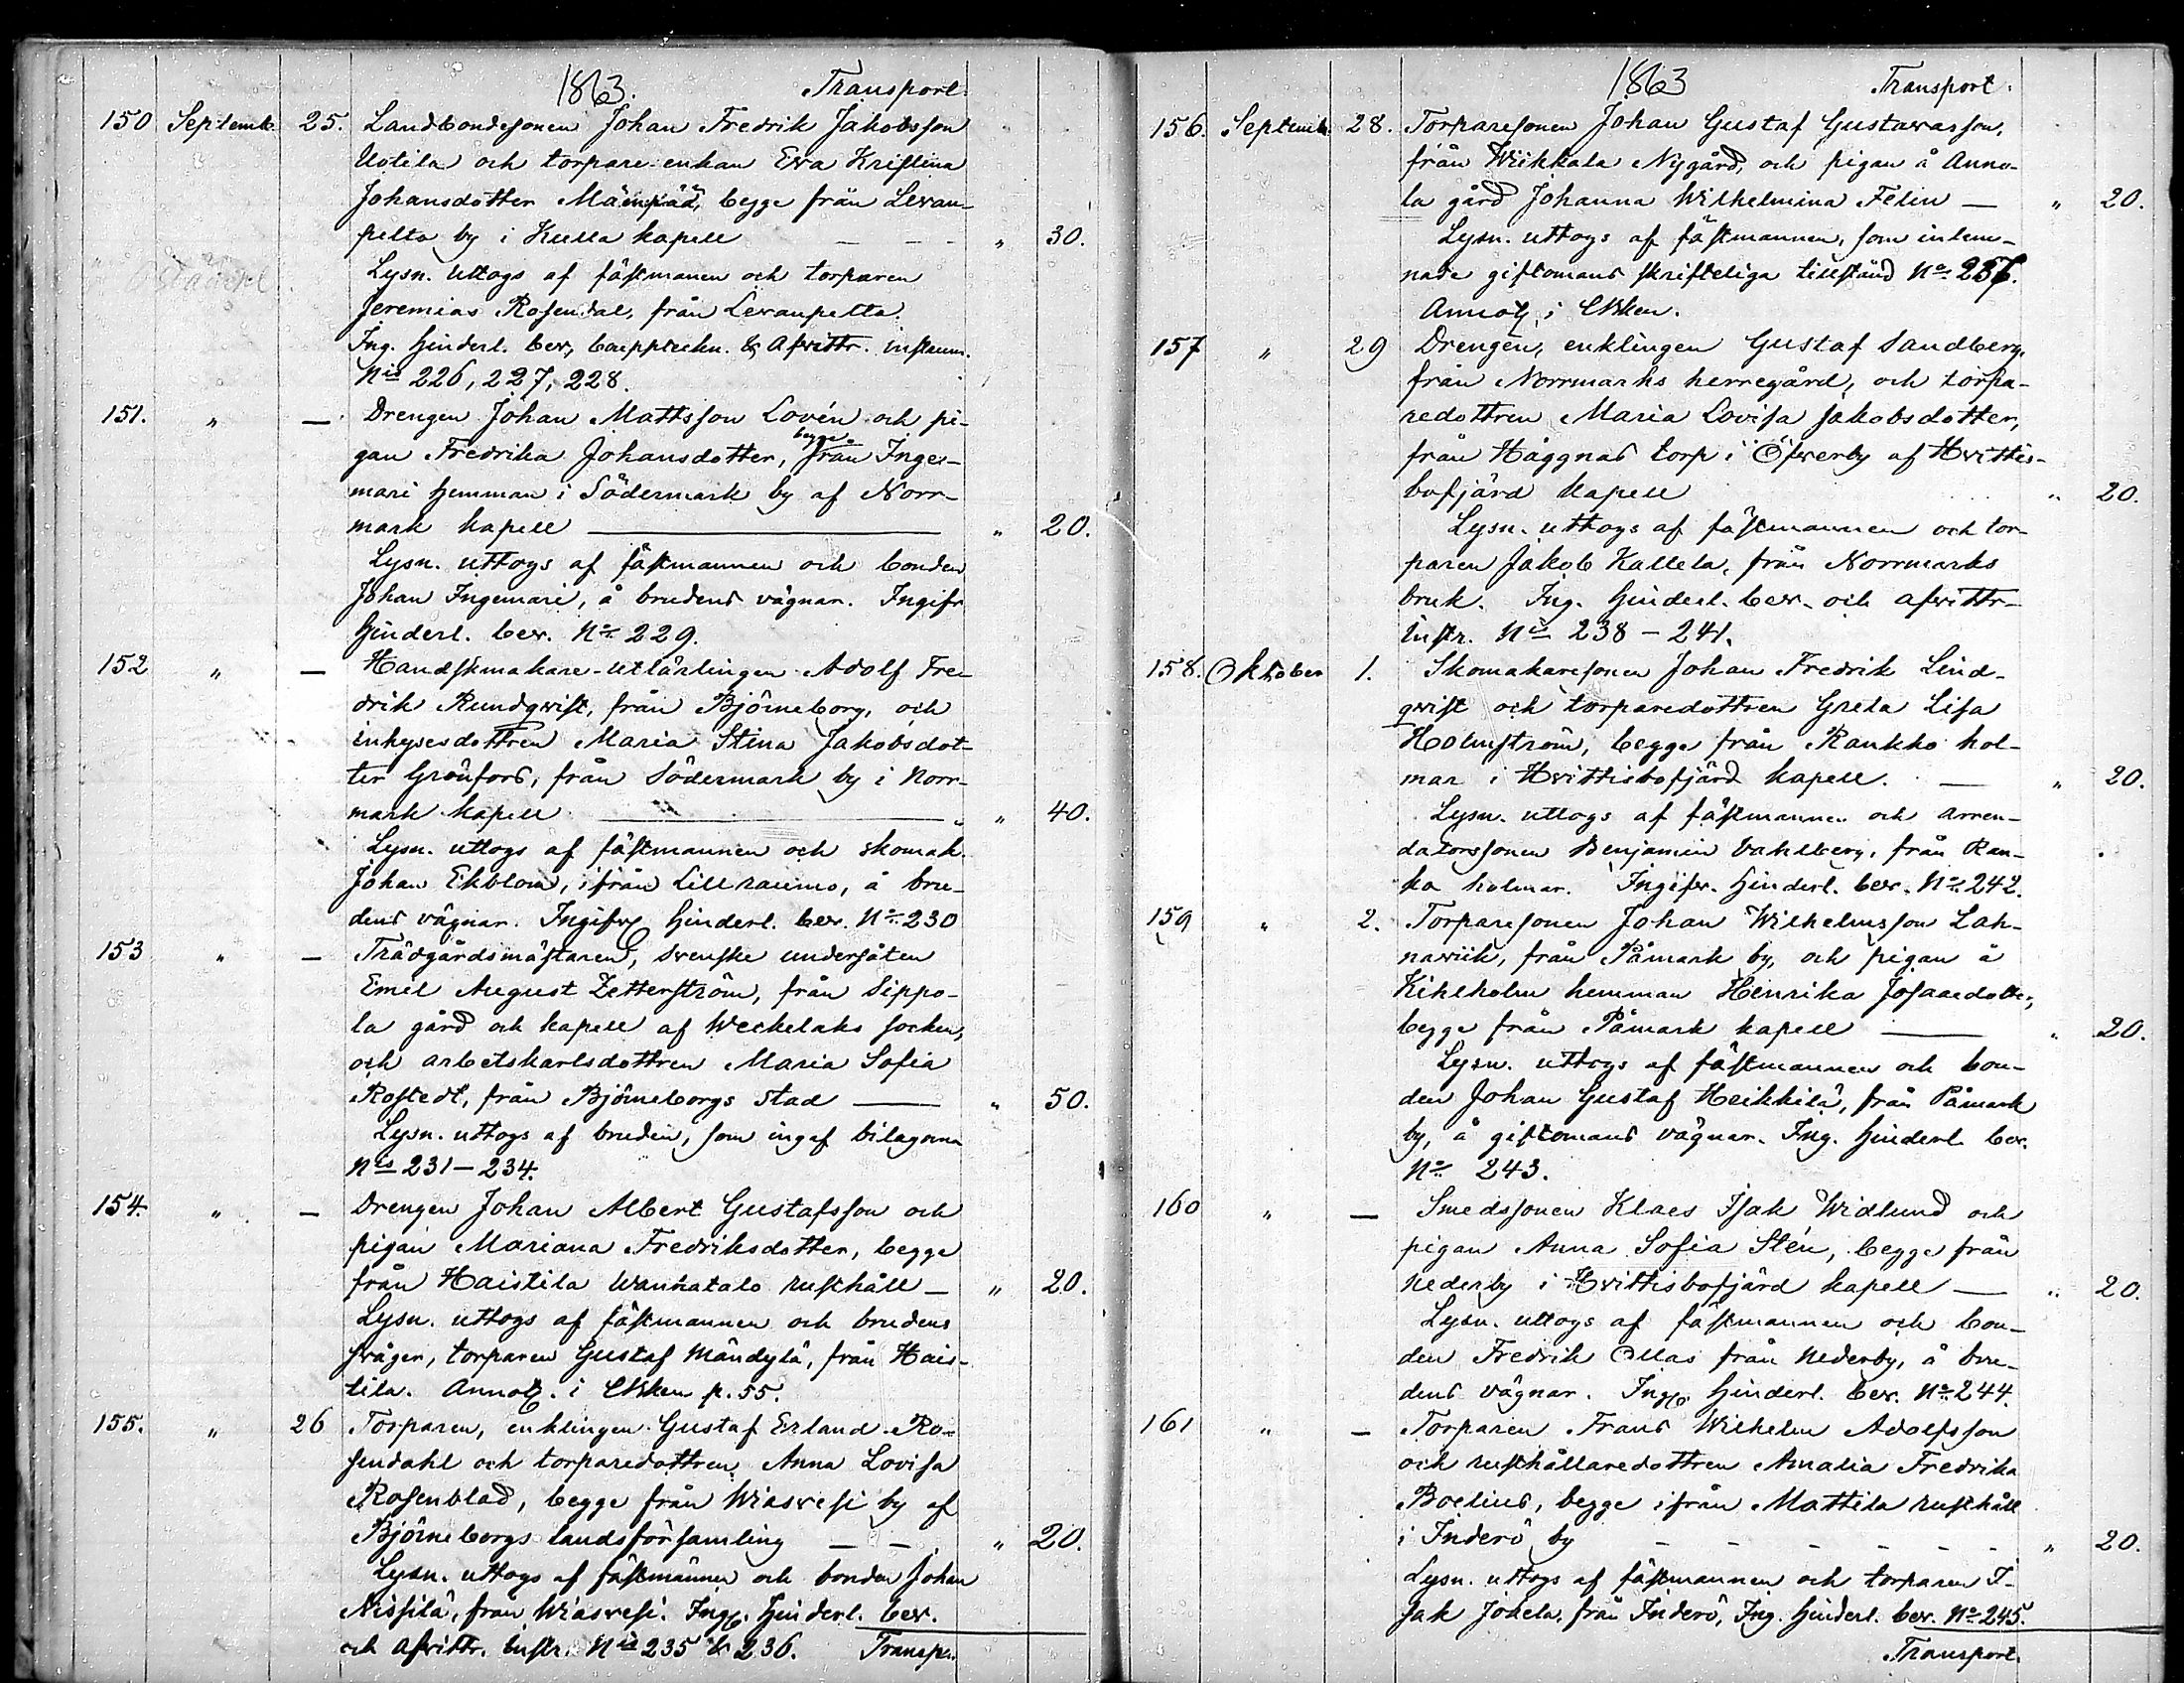 1863. Transport.
150 Septemb. 25. Landbondesonen Johan Fredrik Jakobsson
Uotila och torpare-enkan Eva Kristina
Johansdotter Mäenpää, begge från Levan-
pelto by i Kulla kapell — — - „ 30.
Lysn. uttogs af fästmanen och torparen
Jeremias Rosendal, från Levanpelto.
Ing. hinderl. bev, bouppteckn. & Afvittr. instrum.
Nis 226, 227, 228.
151. „ — Drengen Johan Mattsson Lovén och pi-
gan Fredrika Johansdotter, begge från Inge-
mari hemman i Södermark by af Norr-
mark kapell — „ 20.
Lysn. uttogs af fästmannen och bonden
Johan Ingemari, å brudens vägnar. Ingifv
hinderl. bev. No 229.
152 „ — Handskmakare-utlärlingen Adolf Fre-
drik Rundqvist, från Björneborg, och
inhysesdottren Maria Stina Jakobsdot-
ter Grönfors, från Södermark by i Norr-
mark kapell — „ 40.
Lysn. uttogs af fästmannen och skomak.
Johan Ekblom, ifrån Lillraumo, å bru-
dens vägnar. Ingifv hinderl. bev. No 230
153 „ — Trädgårdsmästaren, svenske undersåten
Emil August Zetterström, från Sippo-
la gård och kapell af Weckelaks socken,
och arbetskarlsdottren Maria Sofia
Rostedt, från Björneborgs stad — „ 50.
Lysn. uttogs af bruden, som ingaf bilagorna
Nis 231-234.
154. „ — Drengen Johan Albert Gustafsson och
pigan Mariana Fredriksdotter, begge
från Haistila Wanhatalo rusthåll — „ 20.
Lysn. uttogs af fästmannen och brudens
svåger, torparen Gustaf Mändylä, från Hais-
tila. Annot. i Ckken p. 55.
155. „ 26 Torparen, enklingen Gustaf Erland Ro-
sendahl och torparedottren Anna Lovisa
Rosenblad, begge från Wiasvesi by af
Björneborgs landsförsamling — — „ 20.
Lysn. uttogs af fästmannen och bonden Johan
Nissilä, från Wiasvesi. Ing. hinderl. bev.
och afvittr. instr. Nis 235 & 236. Transp.
1863 Transport.
156. Septemb. 28. Torparesonen Johan Gustaf Gustavasson,
från Wiikkala Nygård, och pigan å Anno-
la gård Johanna Wilhelmina Felin — „ 20.
Lysn. uttogs af fästmannen, som inlem-
nade giftomans skrifteliga tillstånd No 237.
Annot i Ckken.
157 „ 29 Drengen, enklingen Gustaf Sandberg,
från Norrmarks herregård, och torpa-
redottren Maria Lovisa Jakobsdotter,
från Häggnäs torp i Öfverby af Hvittis-
bofjärd kapell „ 20.
Lysn. uttogs af fästmannen och tor-
paren Jakob Kallela, från Norrmarks
bruk. Ing. hinderl. bev. och afvittr-
instr. Nis 238-241.
158. Oktober 1. Skomakaresonen Johan Fredrik Lind-
qvist och torparedottren Greta Lisa
Holmström, begge från Rankko hol-
mar i Hvittisbofjärd kapell. — „ 20.
Lysn. uttogs af fästmannen och arren-
datorssonen Benjamin Vahlberg, från Ran-
ko holmar. Ingifv. hinderl. bev. No 242.
159 „ 2. Torparesonen Johan Wilhelmsson Lah-
naviik, från Påmark by, och pigan å
Kihlholm hemman Henrika Josaædotter,
begge från Påmark kapell — „ 20.
Lysn. uttogs af fästmannen och bon-
den Johan Gustaf Heikkilä, från Påmark
by, å giftomans vägnar. Ing. hinderl. bev.
No 243.
160 „ — Smedssonen Klaes Isak Widlund och
pigan Anna Sofia Stén, begge från
Nederby i Hvittisbofjärd kapell — „ 20.
Lysn. uttogs af fästmannen och bon-
den Fredrik Ollas från Nederby, å bru-
dens vägnar. Ing. hinderl. bev. No 244.
161 „ — Torparen Frans Wilhelm Adolfsson
och rusthållaredottren Amalia Fredrika
Boelius, begge ifrån Mattila rusthåll
i Inderö by — — — — — „ 20.
Lysn. uttogs af fästmannen och torparen I-
sak Jokela, från Inderö, Ing. hinderl. bev. No 245.
Transport.